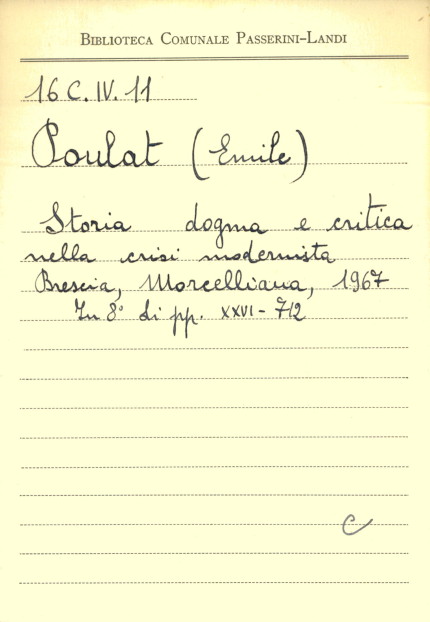 BIBLIOTECA COMUNALE PASSERINI-LANDI
16 C. IV. 11
Poulat (Emile)
Storia dogma e critica
nella crisi modernista
Brescia, Morcelliana, 1967
In 8° di pp. XXVI - 712
C